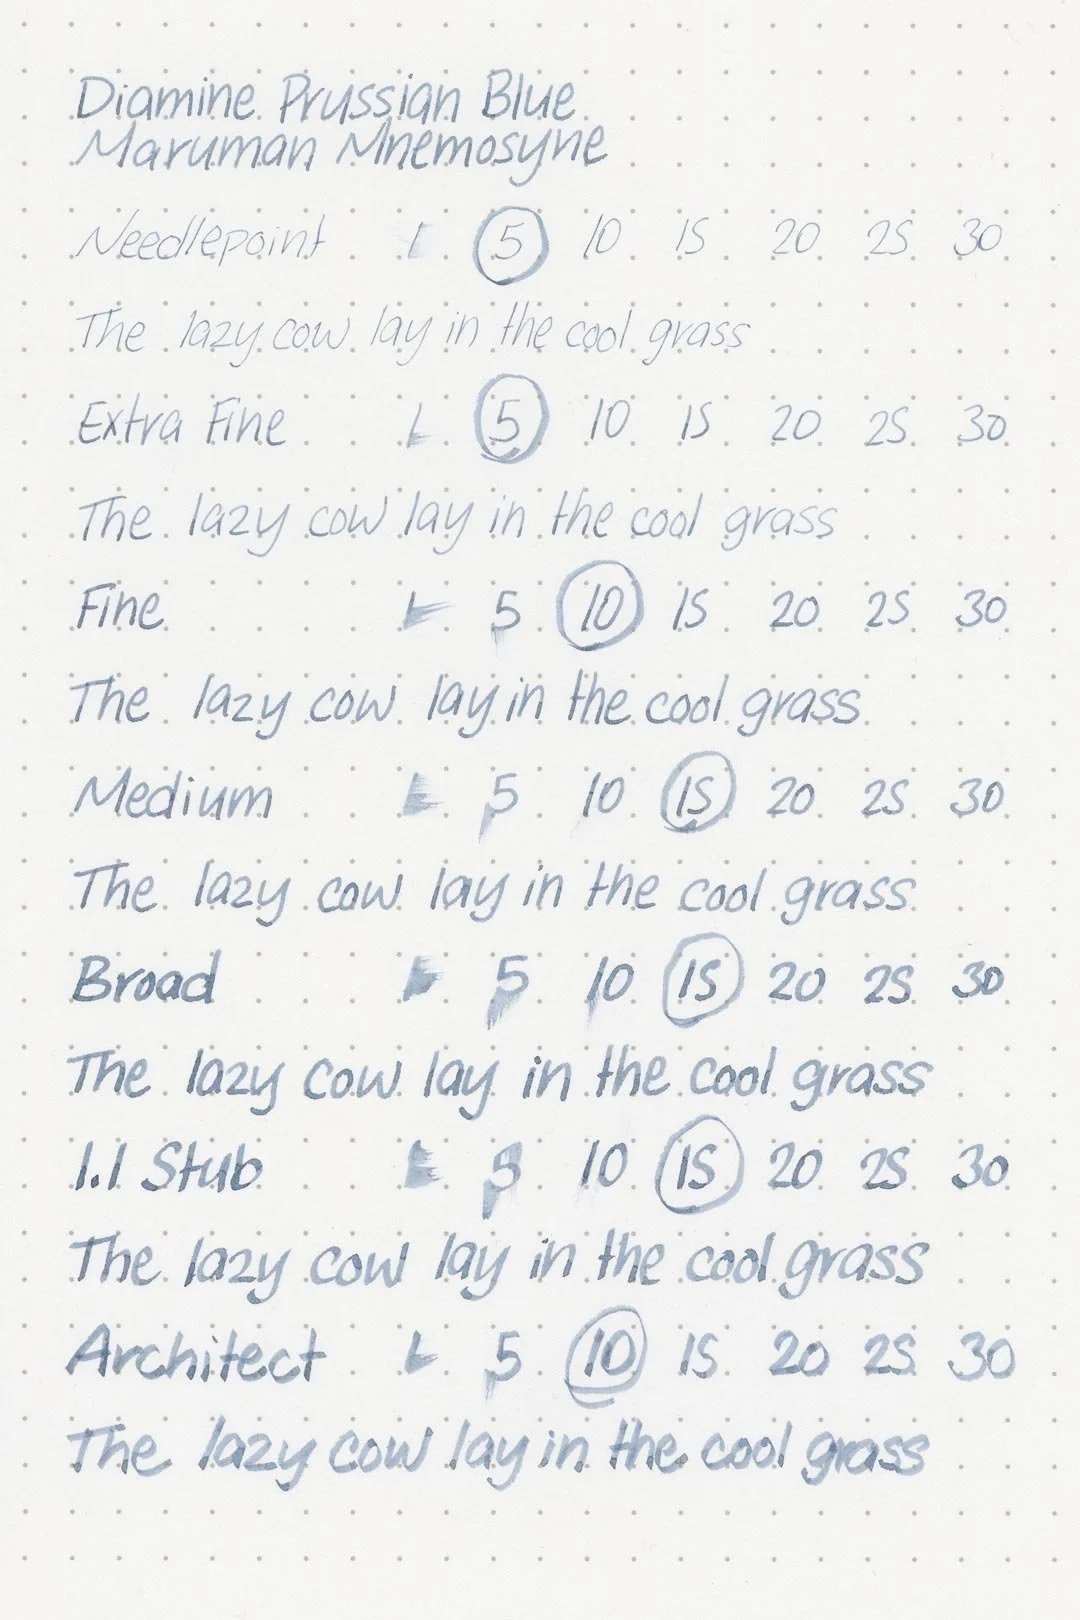 Diamine Prussian Blue
Maruman Mnemosyne
Needlepoint 1 5 10 15 20 25 30
The lazy cow lay in the cool grass
Extra Fine 1 5 10 15 20 25 30
The lazy cow lay in the cool grass
Fine 1 5 10 15 20 25 30
The lazy cow lay in the cool grass
Medium 1 5 10 15 20 25 30
The lazy cow lay in the cool grass
Broad 1 5 10 15 20 25 30
The lazy cow lay in the cool grass
1.1 Stub 1 5 10 15 20 25 30
The lazy cow lay in the cool grass
Architect 1 5 10 15 20 25 30
The lazy cow lay in the cool grass